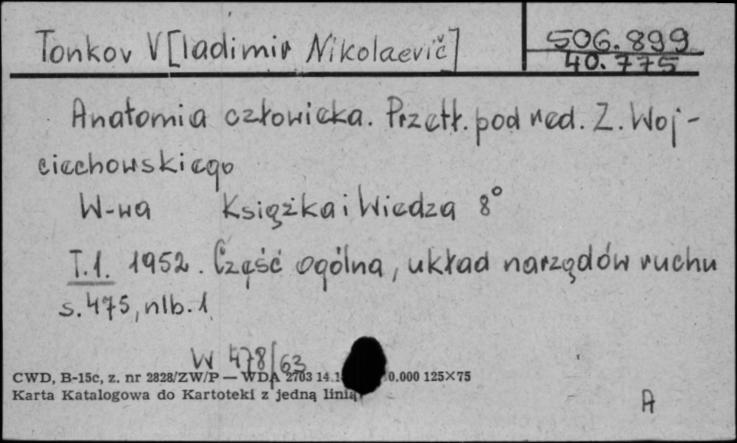 Tonkov V[ladimir Nikolaevič]
506.899
40.775
Anatomia człowieka. Przetł. pod red. Z. Woj-
ciechowskiego
W-wa Książka i Wiedza 8°
T.1. 1952. Część ogólna, układ narządów ruchu
s. 475, nlb. 1
W 478/63
CWD, B-15c, z. nr 2828/ZW/P — WDA 2703 14.1 0.000 125×75
Karta Katalogowa do Kartoteki z jedną linią
A